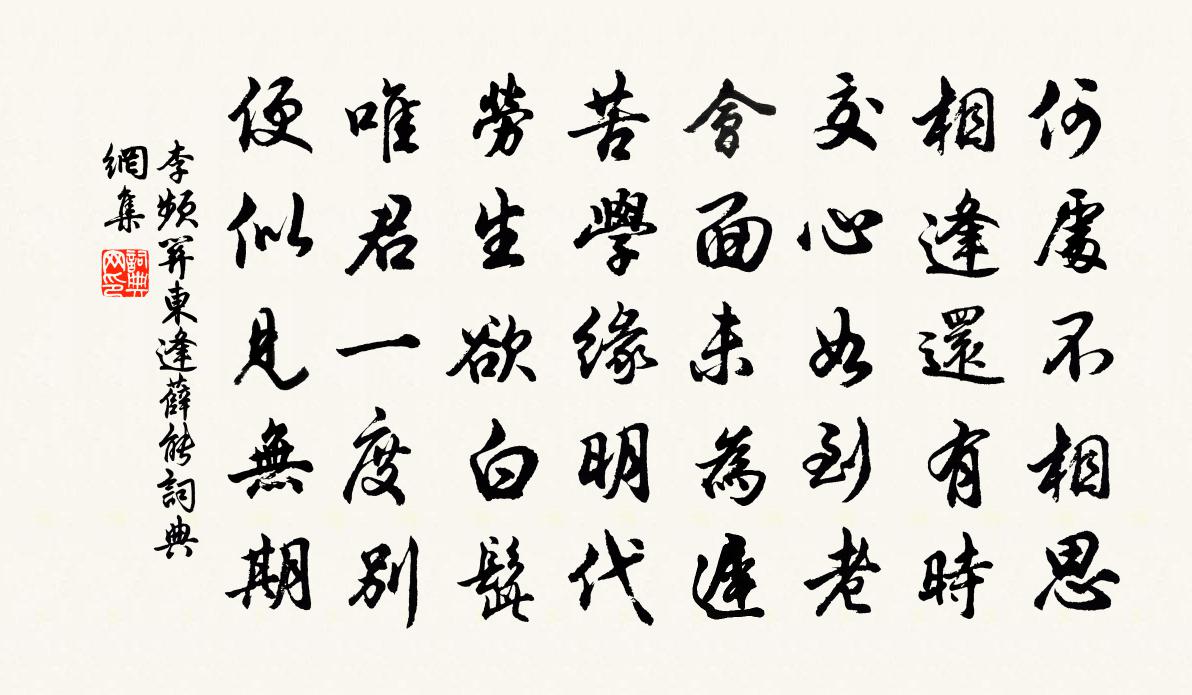 何處不相思
相逢還有時
交心如到老
會面未為遲
苦學緣明代
勞生欲白髭
唯君一度別
便似見無期
李頻關東逢薛能詞典
網集
詞典
网印